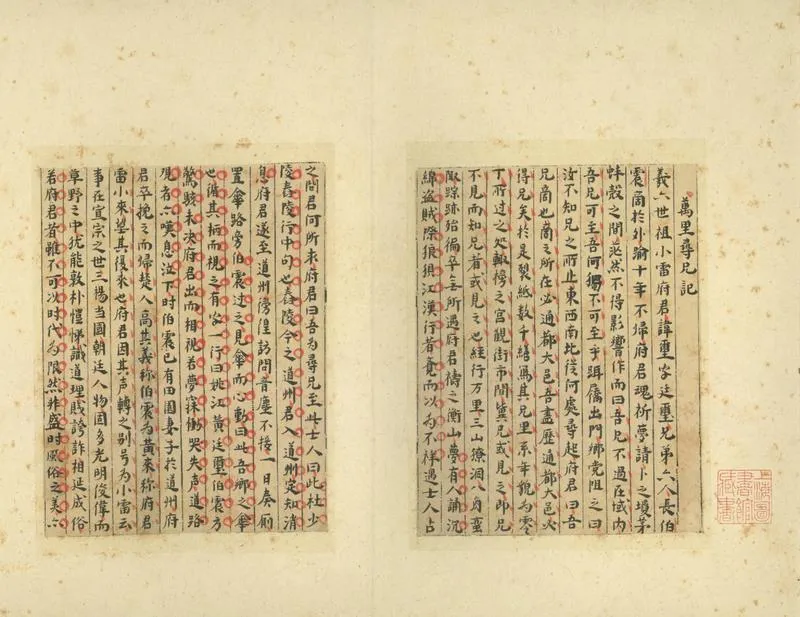 萬里尋兄記
羲六世祖小雷府君諱璽字廷璽兄弟六人長伯
震商於外踰十年不歸府君魂祈夢請卜之瓊茅
蚌殼之間茫然不得影響作而曰吾兄不過在域内
吾兄可至吾何獨不可至乎躡屩出門鄉党阻之曰
汝不知兄之所止東西南北從何處尋起府君曰吾
兄商也商之所在必通都大邑吾盡歷通都大邑必
得兄矣於是裂紙數千繕寫其兄里系年貌为零
丁所过之处輒榜之宫觀街市間冀兄或見之即兄
不見而知兄者或見之也經行万里三山獠洞八角蛮
陬踪跡殆徧卒無所遇府君禱之衡山夢有人誦沉
綿盗賊際狼狽江漢行者覺而以為不祥遇士人占
之問君何所求府君曰吾为尋兄至此士人曰此杜少
陵舂陵行中句也舂陵今之道州君入道州定知消
息府君遂至道州徬徨訪問音塵不接一日奏厠
置傘路旁伯震过之見傘而心動曰此吾鄉之傘
也循其柄而視之有字一行曰姚江黄廷璽伯震方
驚駭未决府君出而相視若夢寐慟哭失声道路
观者亦嘆息泣下时伯震已有田園妻子於道州府
君卒挽之而歸楚人高其義称伯震为黄來称府君
雷小來望其復來也府君因其声轉之别号为小雷云
事在宣宗之世三楊当國朝廷人物固多光明俊偉而
草野之中犹能敦朴愷悌識道理賤誇詐相延成俗
若府君者雖不可以时代为限然非盛时風俗之美亦
上海圖書館藏書